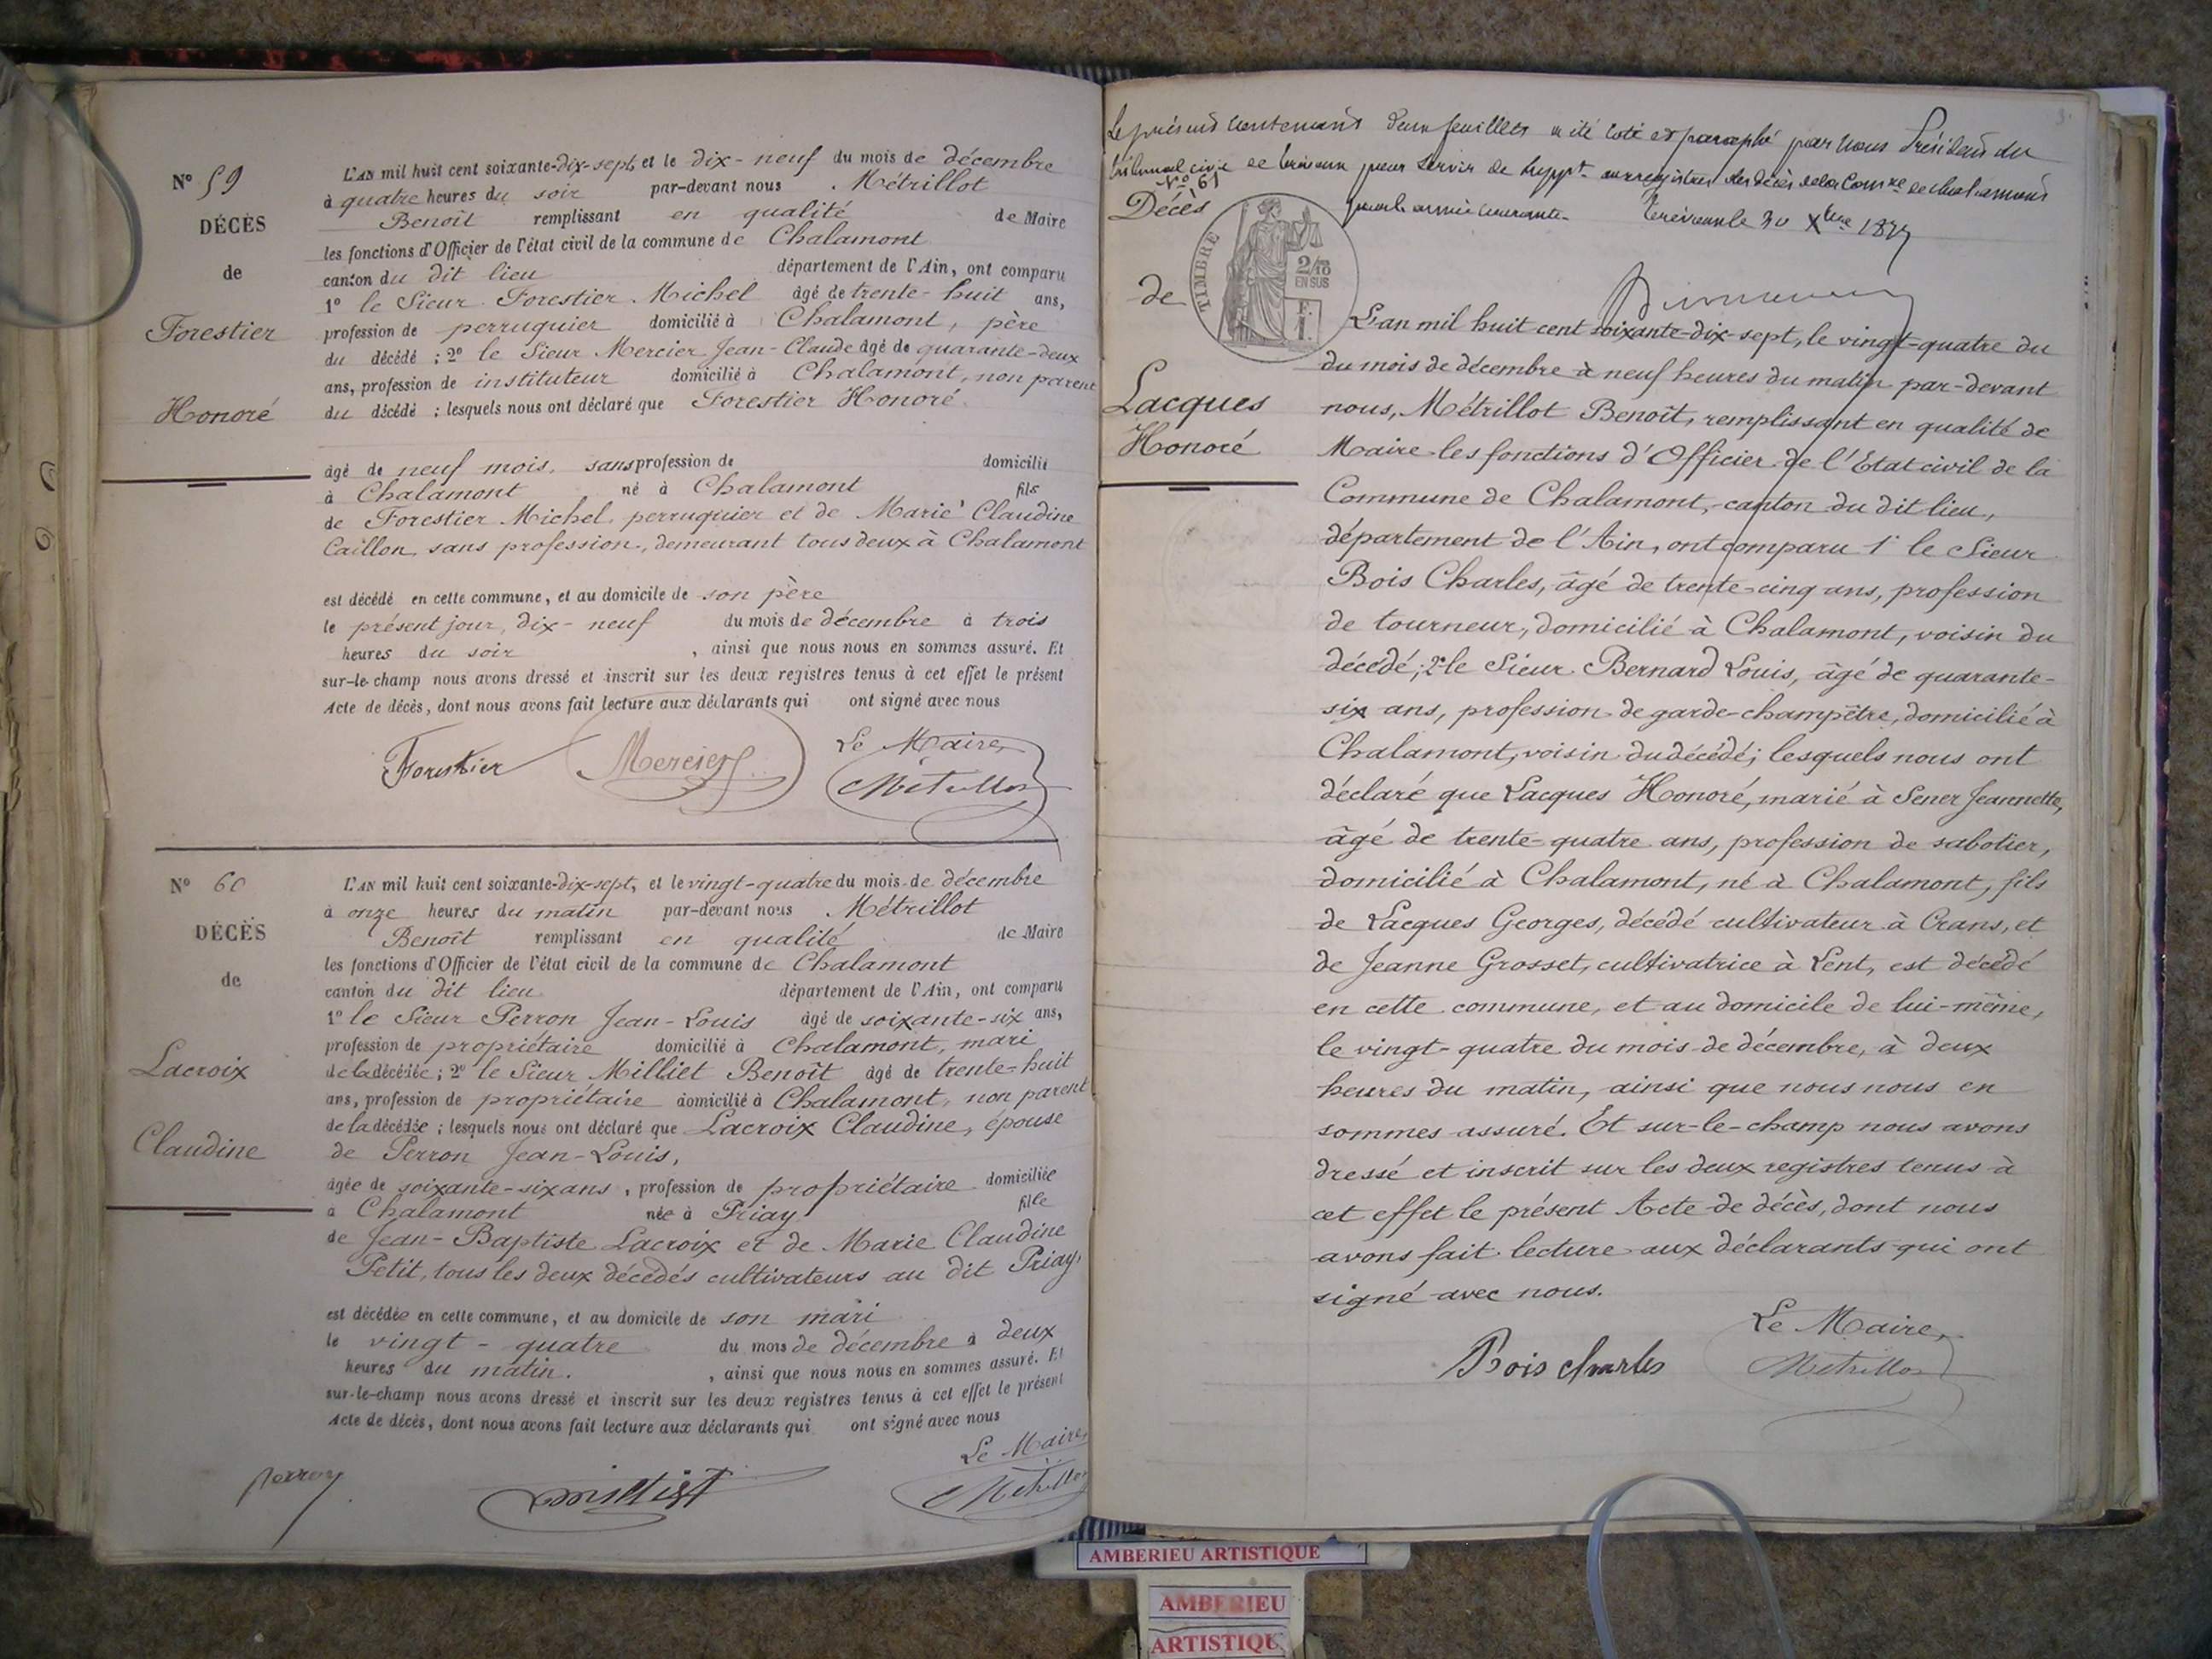 N° 59
DÉCÈS
de
Forestier
Honoré
L'AN mil huit cent soixante-dix-sept, et le dix-neuf du mois de décembre
à quatre heures du soir par-devant nous Métrillot
Benoît remplissant en qualité de Maire
les fonctions d'Officier de l'état civil de la commune de Chalamont
canton du dit lieu département de l'Ain, ont comparu
1° le Sieur Forestier Michel âgé de trente-huit ans,
profession de perruquier domicilié à Chalamont, père
du décédé ; 2° le Sieur Mercier Jean-Claude âgé de quarante-deux
ans, profession de instituteur domicilié à Chalamont, non parent
du décédé ; lesquels nous ont déclaré que Forestier Honoré
âgé de neuf mois, sans profession de domicilié
à Chalamont né à Chalamont fils
de Forestier Michel, perruquier et de Marie Claudine
Caillon, sans profession, demeurant tous deux à Chalamont
est décédé en cette commune, et au domicile de son père
le présent jour, dix-neuf du mois de décembre à trois
heures du soir, ainsi que nous nous en sommes assuré. Et
sur-le-champ nous avons dressé et inscrit sur les deux registres tenus à cet effet le présent
Acte de décès, dont nous avons fait lecture aux déclarants qui ont signé avec nous
Le Maire,
Forestier Mercier Métrillot
N° 60
DÉCÈS
de
Lacroix
Claudine
L'AN mil huit cent soixante-dix-sept, et le vingt-quatre du mois de décembre
à onze heures du matin par-devant nous Métrillot
Benoît remplissant en qualité de Maire
les fonctions d'Officier de l'état civil de la commune de Chalamont
canton du dit lieu département de l'Ain, ont comparu
1° le Sieur Perron Jean-Louis âgé de soixante-six ans,
profession de propriétaire domicilié à Chalamont, mari
de la décédée ; 2° le Sieur Milliet Benoît âgé de trente-huit
ans, profession de propriétaire domicilié à Chalamont, non parent
de la décédée ; lesquels nous ont déclaré que Lacroix Claudine, épouse
de Perron Jean-Louis,
âgée de soixante-six ans, profession de propriétaire domiciliée
à Chalamont née à Priay fille
de Jean-Baptiste Lacroix et de Marie Claudine
Petit, tous les deux décédés cultivateurs au dit Priay,
est décédée en cette commune, et au domicile de son mari
le vingt-quatre du mois de décembre à deux
heures du matin. , ainsi que nous nous en sommes assuré. Et
sur-le-champ nous avons dressé et inscrit sur les deux registres tenus à cet effet le présent
Acte de décès, dont nous avons fait lecture aux déclarants qui ont signé avec nous
Le Maire,
perron Milliet Métrillot
Le présent contenant deux feuillets a été coté et paraphé par nous Président du
tribunal civil de Trévoux pour servir de suppt. aux registres des décès de la Comne de Chalamont
pour l'année courante. Trévoux le 30 Xbre 1877
N° 61
Décès
de
TIMBRE
2/10
EN SUS
F.
1.
Lacques
Honoré
L'an mil huit cent soixante-dix-sept, le vingt-quatre du
du mois de décembre à neuf heures du matin par-devant
nous, Métrillot Benoît, remplissant en qualité de
Maire les fonctions d'Officier de l'Etat civil de la
Commune de Chalamont, canton du dit lieu,
département de l'Ain, ont comparu 1° le Sieur
Bois Charles, âgé de trente-cinq ans, profession
de tourneur, domicilié à Chalamont, voisin du
décédé; 2° le Sieur Bernard Louis, âgé de quarante-
six ans, profession de garde-champêtre, domicilié à
Chalamont, voisin du décédé; lesquels nous ont
déclaré que Lacques Honoré, marié à Sener Jeannette,
âgé de trente-quatre ans, profession de sabotier,
domicilié à Chalamont, né à Chalamont, fils
de Lacques Georges, décédé cultivateur à Crans, et
de Jeanne Grosset, cultivatrice à Lent, est décédé
en cette commune, et au domicile de lui-même,
le vingt-quatre du mois de décembre, à deux
heures du matin, ainsi que nous nous en
sommes assuré. Et sur-le-champ nous avons
dressé et inscrit sur les deux registres tenus à
cet effet le présent Acte de décès, dont nous
avons fait lecture aux déclarants qui ont
signé avec nous.
Le Maire,
Bois charles Métrillot
AMBERIEU ARTISTIQUE
AMBERIEU
ARTISTIQU